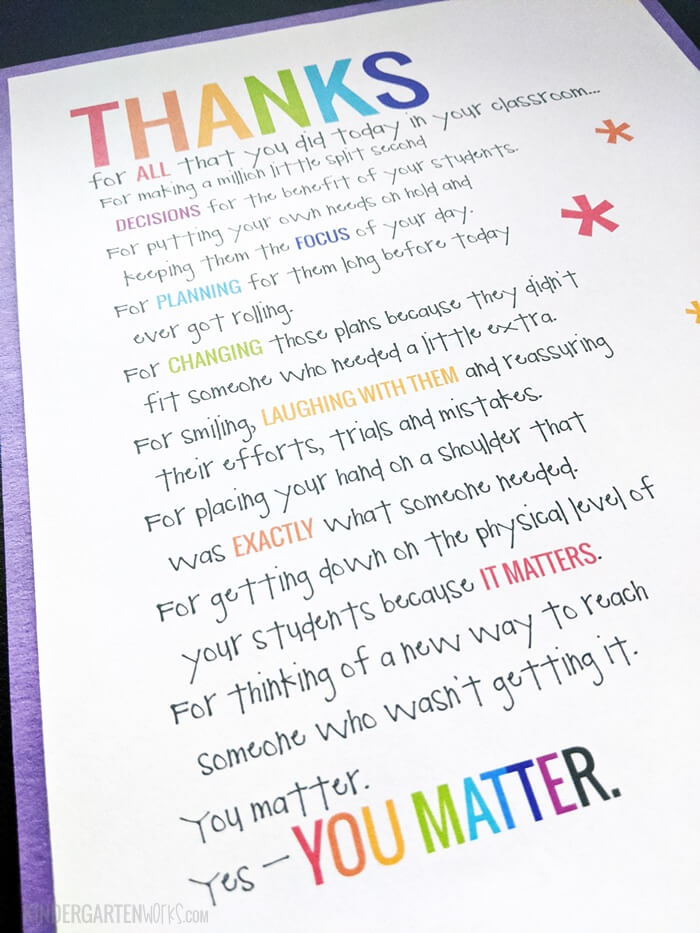 THANKS
for ALL that you did today in your classroom...
For making a million little split second
DECISIONS for the benefit of your students.
For putting your own needs on hold and
keeping them the FOCUS of your day.
For PLANNING for them long before today
ever got rolling.
For CHANGING those plans because they didn't
fit someone who needed a little extra.
For smiling, LAUGHING WITH THEM and reassuring
their efforts, trials and mistakes.
For placing your hand on a shoulder that
was EXACTLY what someone needed.
For getting down on the physical level of
your students because IT MATTERS.
For thinking of a new way to reach
someone who wasn't getting it.
You matter.
Yes – YOU MATTER.
KINDERGARTENWORKS.COM